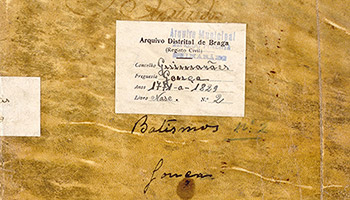 Arquivo Municipal
Arquivo Distrital de Braga
(Registo Civil)
Concelho Guimarães
Freguesia Gonça
Anos 17 -a-1829
Livro Nasc. N.º 2
Batismos Nº 2
Gonça